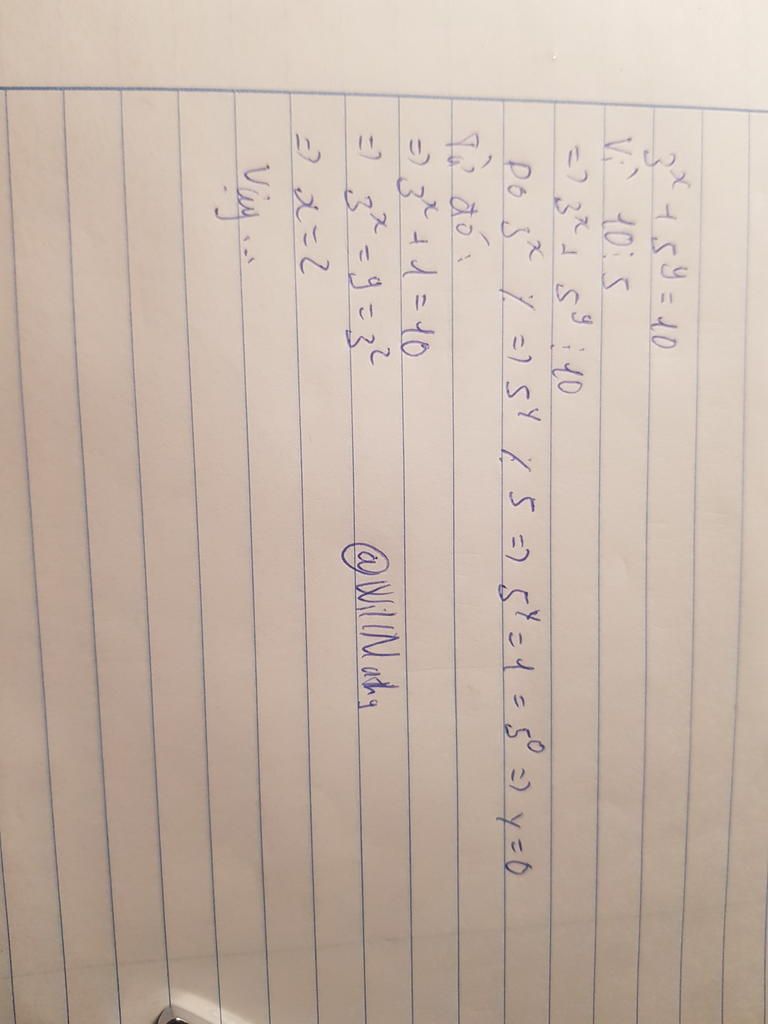 3^x + 5^y = 10
Vì 10 ⋮ 5
=> 3^x + 5^y ⋮ 10
Do 3^x ⋮̸ => 5^y ⋮̸ 5 => 5^y = 1 = 5^0 => y = 0
Từ đó:
=> 3^x + 1 = 10
=> 3^x = 9 = 3^2
=> x = 2
Vậy...